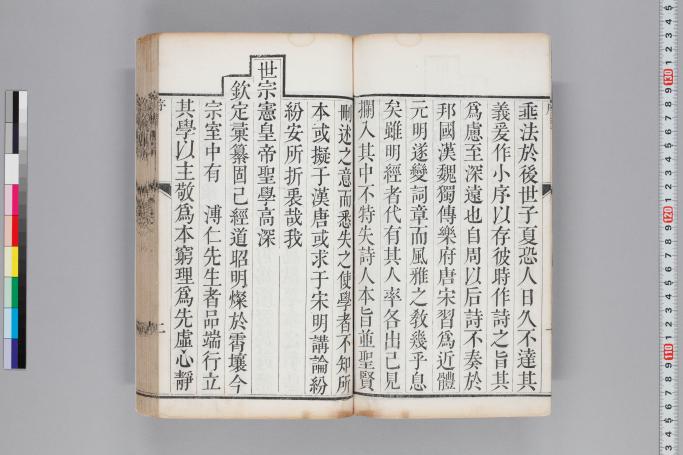 乘法於後世子夏恐人日久不達其
義爰作小序以存彼時作詩之旨其
爲慮至深遠也自周以后詩不奏於
邦國漢魏獨傳樂府唐宋習爲近體
元明遂變詞章而風雅之敎幾乎息
矣雖明經者代有其人率各出己見
攔入其中不特失詩人本旨並聖賢
刪述之意而悉失之使學者不知所
本或擬于漢唐或求于宋明講論紛
紛安所折衷哉我
世宗憲皇帝聖學高深
欽定彙纂固已經道昭明燦於霄壤今
宗室中有 溥仁先生者品端行立
其學以主敬爲本窮理爲先虛心靜
序
二